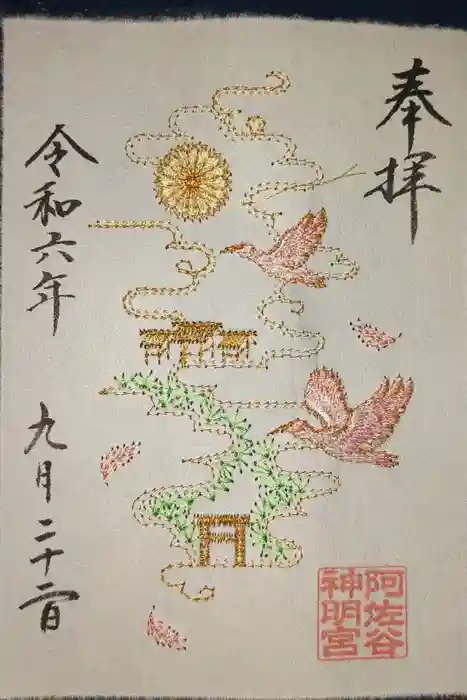 奉拝
令和六年
九月二十二日
阿佐谷
神明宮